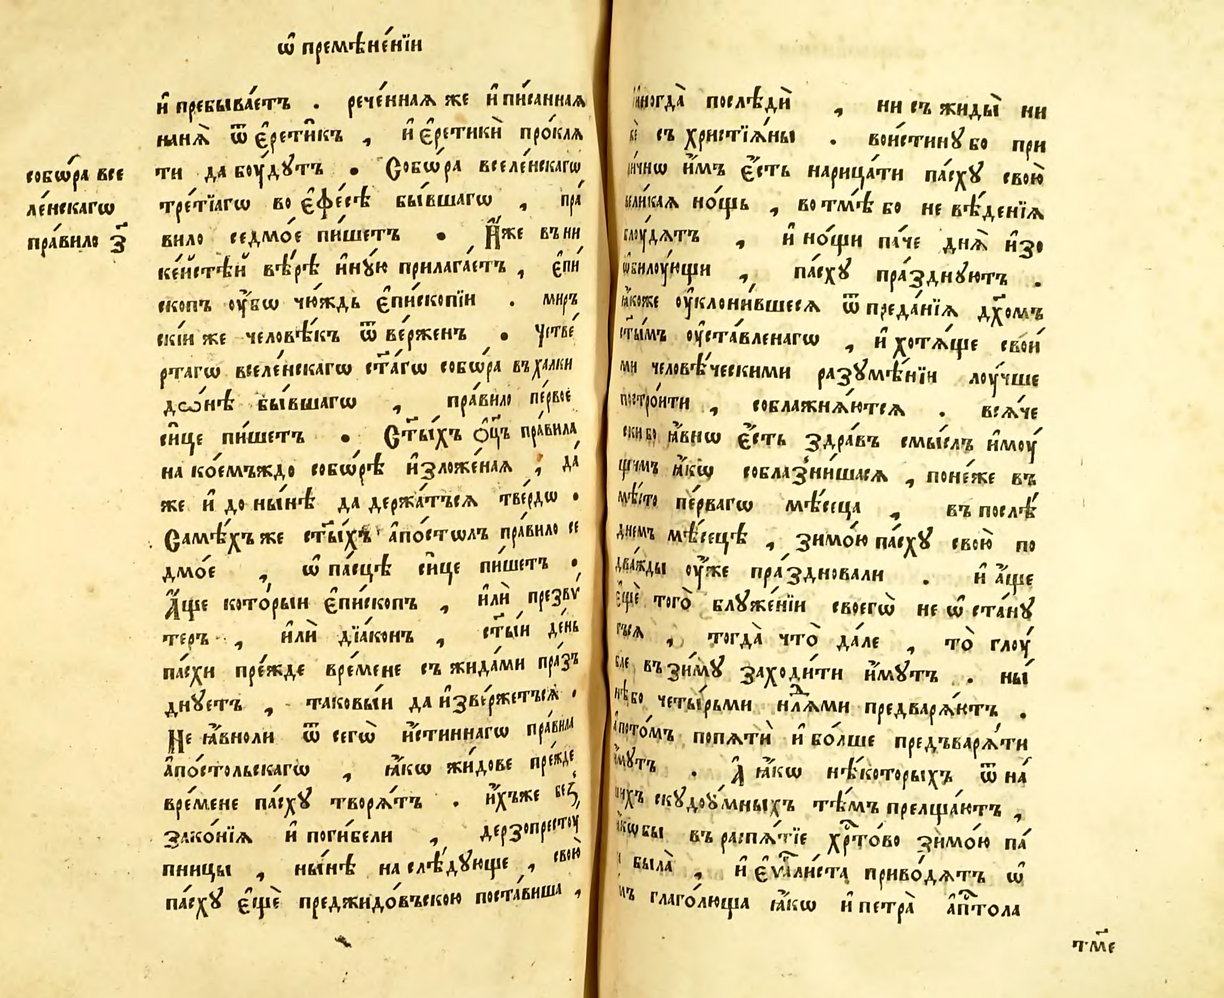 ѿ премѣне́нїи
и҆ пребыва́етъ . рече́ннаѧ же и҆ пи́саннаѧ
нанѧ̀ ѿ є҆рети̑къ , и҆ є҆ретикѝ про́клѧ
собѡ́ра все
ле́нскагѡ
пра́вило з҃
ти да бꙋ́дꙋтъ . Собѡ́ра вселе́нскагѡ
тре́тїагѡ во є҆фе́сѣ бы́вшагѡ , пра́
вило седмо́е пи́шетъ . И҆́же въ ни
ке́йстѣй вѣ́рѣ и҆нꙋ́ю прилага́етъ , є҆пи́
скопъ ᲂу҆́бѡ чю́ждь є҆пи́скопїи . мир
скі́и же человѣ́къ ѿве́рженъ . Четве́
ртагѡ вселе́нскагѡ ст҃а́гѡ собѡ́ра въ халки
дѡ́нѣ бы́вшагѡ , пра́вило пе́рвое
си́це пи́шетъ . Ст҃ы́хъ ѻ҆ц҃ъ пра́вила
на ко́емъждо собѡ́рѣ и҆зложе́наѧ , да́
же и҆ до ны́нѣ да держа́тъсѧ тве́рдѡ .
Самѣ́хъ же ст҃ы́хъ а҆по́столъ пра́вило се
дмо́е , ѡ҆ па́сцѣ си́це пи́шетъ .
А҆́ще кото́рыи є҆пи́скопъ , и҆лѝ презвѵ́
теръ , и҆лѝ дїа́конъ , ст҃ы́и де́нь
па́схи пре́жде вре́мене съ жида́ми пра́зъ
днꙋетъ , таковы́и да и҆зве́ржетъсѧ .
Не ꙗ҆́вноли ѿ сегѡ̀ и҆́стиннагѡ пра́вила
а҆по́стольскагѡ , ꙗ҆́кѡ жи́дове пре́жде
вре́мене па́схꙋ творѧ́тъ . и҆́хъже без̾
зако́нїѧ и҆ поги́бели , дерзопрестꙋ́
пницы , ны́нѣ на слѣ́дꙋюще , свою̀
па́схꙋ є҆щѐ преджидо́въскою поста́виша ,
и҆ногда̀ послѣдѝ , ни съ жиды̀ ни
съ христїѧ́ны . вои́стинꙋ бо при
и҆̀мъ є҆́сть нарица́ти па́схꙋ свою̀
вели́каѧ но́щь , во тмѣ̀ бо не вѣ́денїѧ
блꙋ́дѧтъ , и҆ но́щи па́че днѧ̀ и҆зо
ѡ҆билꙋ́ющи , па́схꙋ пра́зднꙋютъ .
ꙗ҆́коже ᲂу҆клони́вшесѧ ѿ преда́нїѧ дх҃омъ
ст҃ы́мъ ᲂу҆ста́вленагѡ , и҆ хотѧ́ще свои́
ми человѣ́ческими разꙋмѣ́нїи лꙋ́чше
постро́ити , соблажнѧ́ютсѧ . всѧ́че
ски бо ꙗ҆́внѡ є҆́сть здра́въ смы́слъ и҆мꙋ́
щимъ ꙗ҆́кѡ соблазни́шасѧ , поне́же въ
мѣ́сто пе́рвагѡ мѣ́сеца , въ послѣ́
днемъ мѣ́сецѣ , зимо́ю па́схꙋ свою̀ по
два́жды ᲂу҆́же пра́здновали . и҆ а҆́ще
є҆щѐ того̀ блꙋже́нїи своегѡ̀ не ѡ҆ста́нꙋ
тьсѧ , тогда̀ что̀ да́ле , то̀ глꙋ́
бле въ зи́мꙋ заходи́ти и҆́мꙋтъ . ны́
нѣ бо четы́рьми нл҃ями предварѧ́ютъ .
а҆ пото́мъ попѧтѝ и҆ бо́лше предъварѧ́ти
и҆́мꙋтъ . А҆ ꙗ҆́кѡ нѣ́которыхъ ѿ на́
шихъ скꙋдоꙋ́мныхъ тѣ́мъ прелща́ютъ ,
ꙗ҆́кѡ бы въ распѧ́тїе хр҃то́во зимо́ю па́
была̀ , и҆ є҆ѵ҃гли́ста приво́дѧтъ ѡ҆
глаго́люща ꙗ҆́кѡ и҆ петра̀ а҆п҃тола
тме